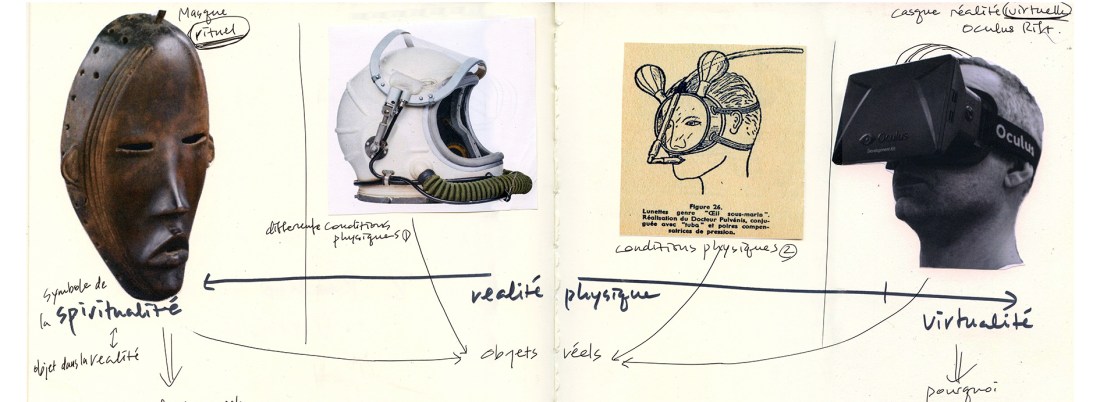 Masque
rituel
casque réalité virtuelle
Oculus Rift.
Oculus
Development Kit
Oculus
Figure 26.
Lunettes genre "Œil sous-marin".
Réalisation du Docteur Pulvénis, conju-
guée avec "tuba" et poires compen-
satrices de pression.
différente conditions
physiques ①
conditions physiques ②
symbole de
la spiritualité
realité physique
virtualité
objet dans la realité
objets réels
pourquoi